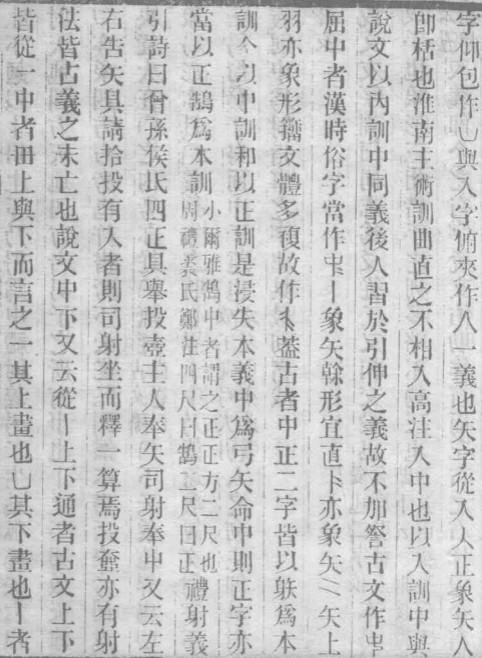 字仰包作凵與入字俯夾作人一義也矢字從入入正象矢人
卽栝也淮南主術訓曲直之不相入高注入中也以入訓中與
說文以內訓中同義後人習於引伸之義故不加詧古文作
屈中者漢時俗字當作丨象矢榦形宜直亦象矢二矢上
羽亦象形籀文體多複故作葢古者中正二字皆以躲爲本
訓今以中訓和以正訓是浸失本義中爲弓矢命中則正字亦
當以正鵠爲本訓小爾雅鵠中者謂之正正方二尺也
周禮裘氏鄭注四尺曰鵠二尺曰正禮射義
引詩曰曾孫侯氏四正具舉投壺主人奉矢司射奉中又云左
右告矢具請拾投有入者則司射坐而釋一算焉投壺亦有射
法皆古義之未亡也說文中下又云從丨上下通者古文上下
皆從一中者毌上與下而言之一其上畫也凵其下畫也丨者